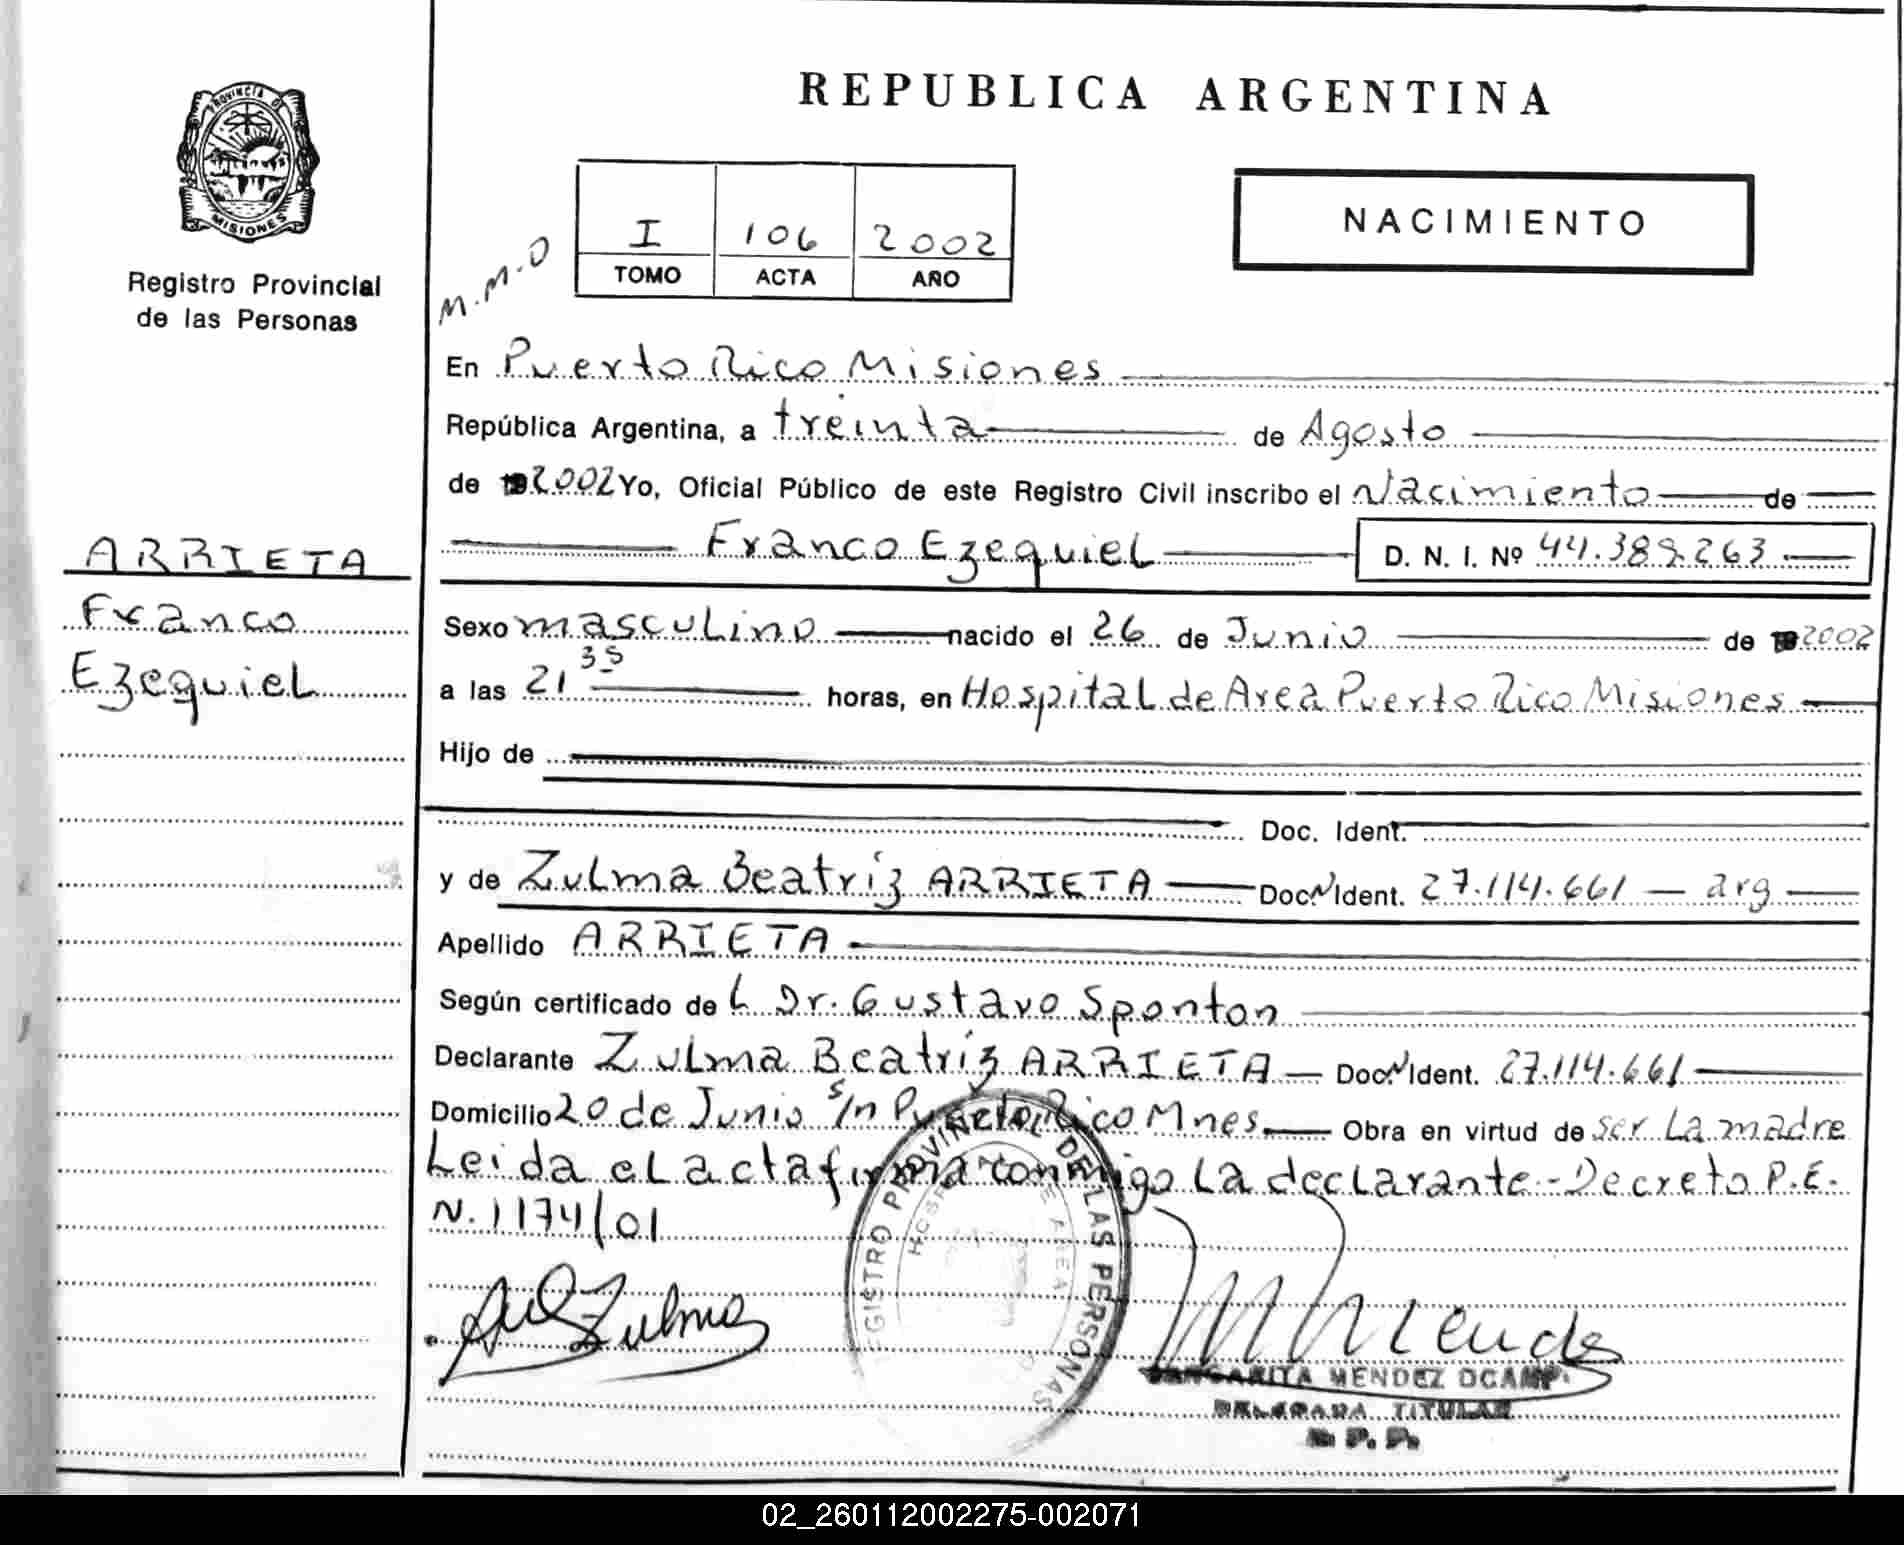 PROVINCIA D
MISIONES
Registro Provincial
de las Personas
ARRIETA
Franco
Ezequiel
REPUBLICA ARGENTINA
M.M.O
I 106 2002
TOMO ACTA AÑO
NACIMIENTO
En Puerto Rico Misiones
República Argentina, a treinta de Agosto
de 2002 Yo, Oficial Público de este Registro Civil inscribo el Nacimiento de
Franco Ezequiel D. N. I. Nº 44.389.263
Sexo masculino nacido el 26 de Junio de 2002
a las 21 35 horas, en Hospital de Area Puerto Rico Misiones
Hijo de
Doc. Ident.
y de Zulma Beatriz ARRIETA Doc. N Ident. 27.114.661 — arg
Apellido ARRIETA
Según certificado de L Dr. Gustavo Sponton
Declarante Zulma Beatriz ARRIETA — Doc. N Ident. 27.114.661
Domicilio 20 de Junio s/n Puerto Rico Mnes. Obra en virtud de ser La madre
Leida el acta firma conmigo La declarante - Decreto P.E.
N. 1174/01
Zulma
REGISTRO PROVINCIAL DE LAS PERSONAS
MARGARITA MENDEZ OCAMPO
DELEGADA TITULAR
R. P. P.
02_260112002275-002071